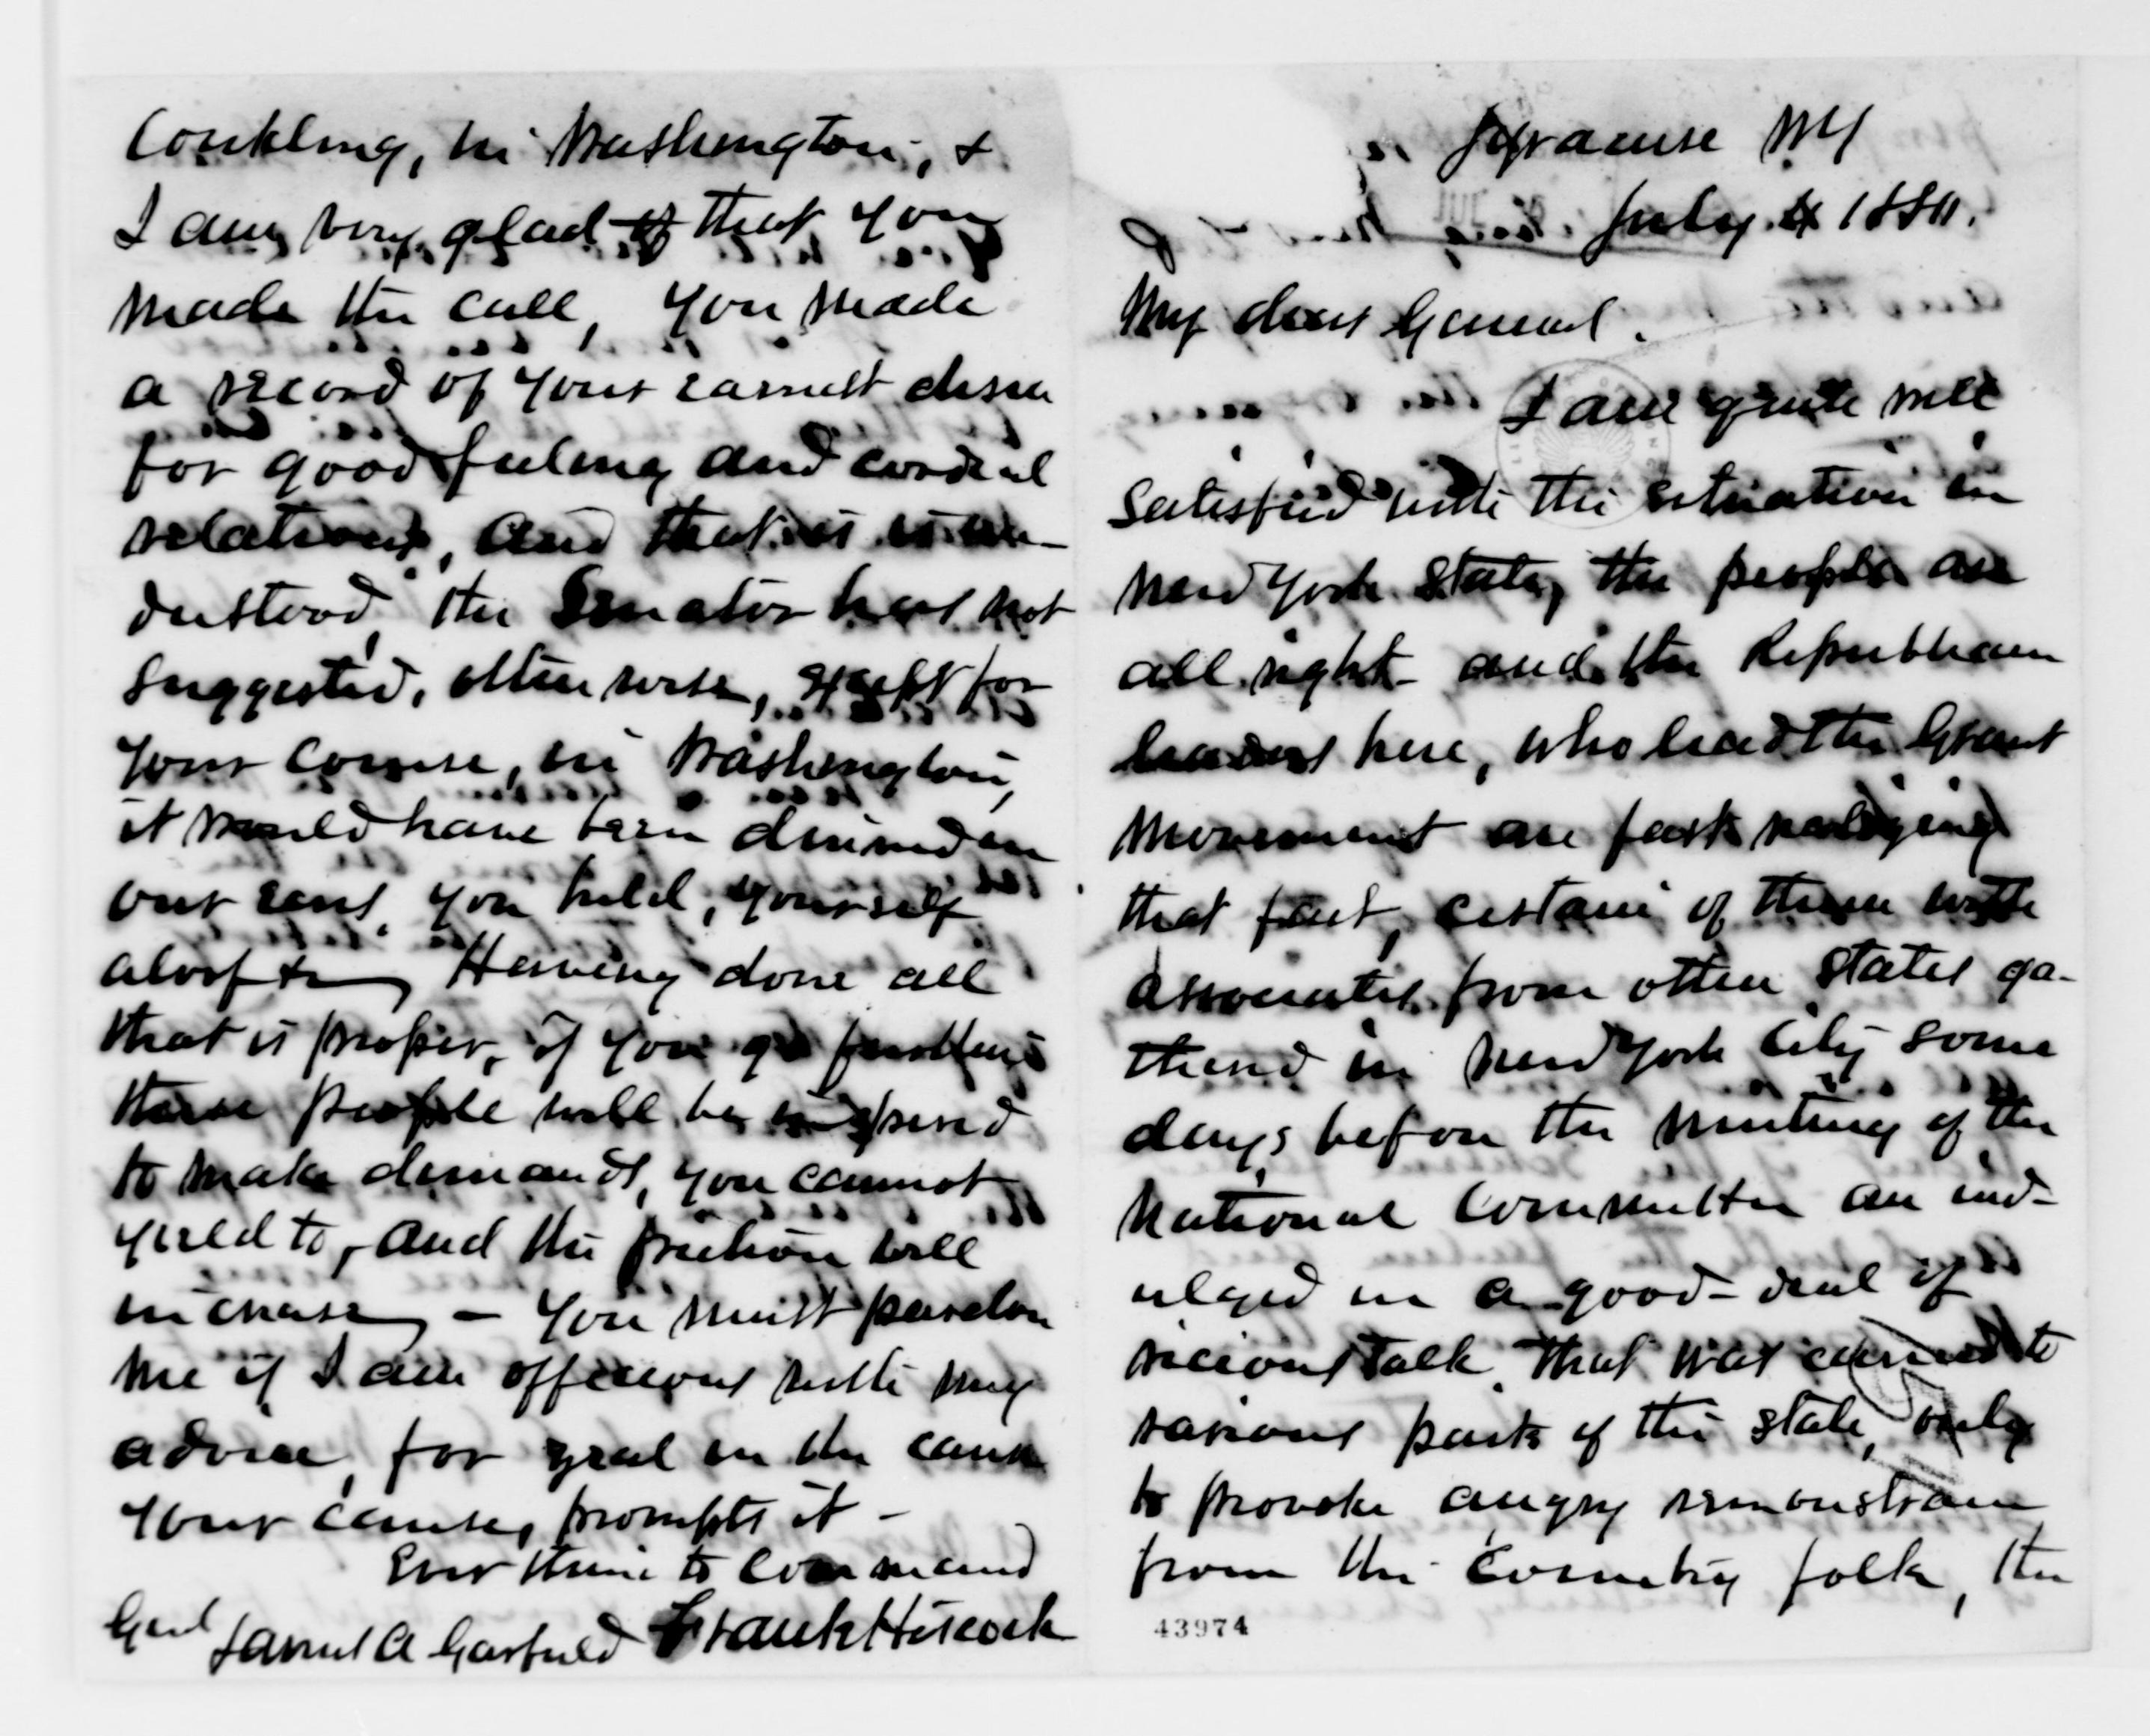 Syracuse NY
July 4 1880.
My dear General.
I am quite well
satisfied with the situation in
New York State, the people are
all right and the Republican
leaders here, who lead the Grant
movement are fast realizing
that fact, certain of them with
associates from other states ga-
thered in New York City some
days before the meeting of the
National Committee an ind-
ulged in a good-deal of
vicious talk that was carried to
various parts of the state, only
to provoke angry remonstrance
from the country folk, the
43974
Conkling, in Washington, &
I am very glad that you
made the call, you made
a record of your earnest desire
for good feeling and cordial
relations, and that is un-
derstood, the Senator has not
suggested, otherwise, except for
your course, in Washington,
it would have been dinned in
our ears, you held, yourself
aloof &c, Having done all
that is proper, if you go further
these people will be inspired
to make demands, you cannot
yield to, and the friction will
increase, - You must pardon
me if I am officious with my
advice, for zeal in the cause
your cause, prompts it -
Ever thine to command
Genl James A Garfield Frank Hiscock